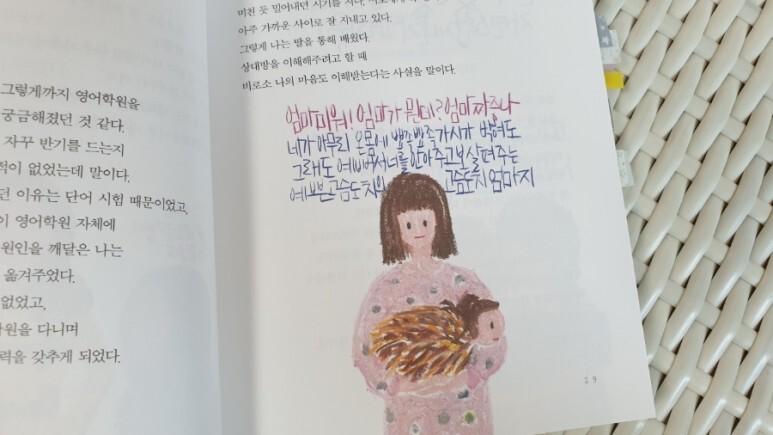 그렇게까지 영어학원을
궁금해졌던 것 같다.
자꾸 반기를 드는지
적이 없었는데 말이다.
던 이유는 단어 시험 때문이었고,
이 영어학원 자체에
원인을 깨달은 나는
옮겨주었다.
없었고,
학원을 다니며
력을 갖추게 되었다.
미친 듯 밀어내던 시기를 지나,
아주 가까운 사이로 잘 지내고 있다.
그렇게 나는 딸을 통해 배웠다.
상대방을 이해해주려고 할 때
비로소 나의 마음도 이해받는다는 사실을 말이다.
엄마 미워! 엄마가 뭔데? 엄마 짜증나
네가 아무리 온몸에 뾰족뾰족 가시가 박혀도
그래도 예뻐서 너를 안아주고 보살펴주는
예쁜 고슴도치 고슴도치 엄마지